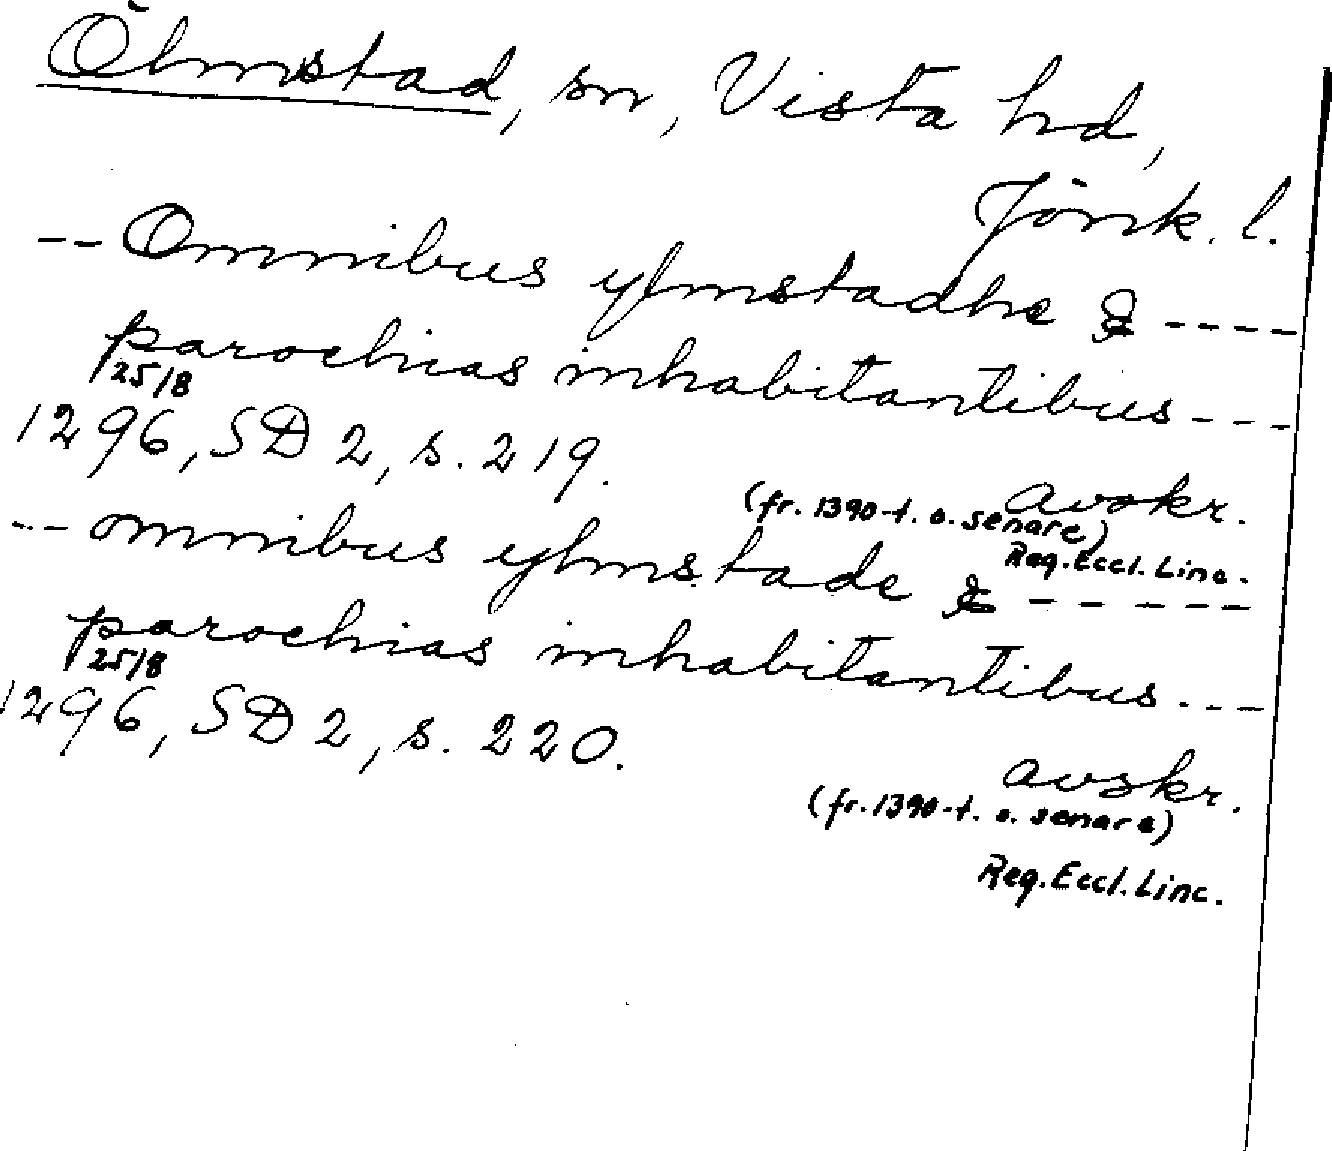 Ölmstad, sn, Vista hd,
Jönk. l.
-- Omnibus ylmstadhe & ----
parochias inhabitantibus ---
25/8
1296, SD 2, s. 219.
avskr.
(fr. 1390-t. o. senare)
Reg. Eccl. Linc.
--- omnibus ylmstade & -----
parochias inhabitantibus ---
25/8
1296, SD 2, s. 220.
avskr.
(fr. 1390-t. o. senare)
Reg. Eccl. Linc.